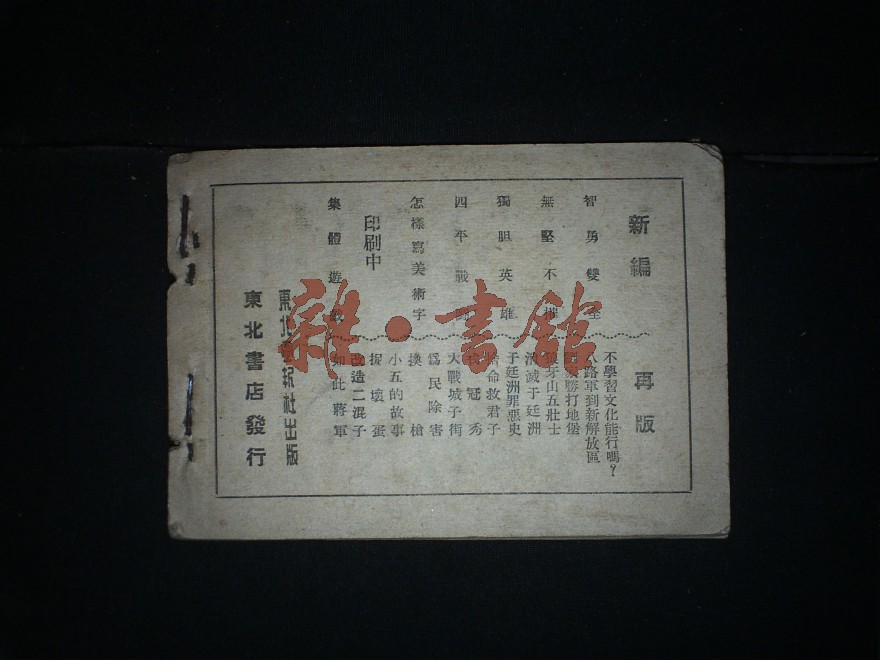 新編
智勇雙全
無堅不摧
獨胆英雄
四平戰
怎樣寫美術字
印刷中
集體遊
再版
不學習文化能行嗎？
八路軍到新解放區
勝打地堡
狼牙山五壯士
滅于廷洲
于廷洲罪惡史
命救君子
冠秀
大戰城子街
爲民除害
換槍
小五的故事
捉壞蛋
改造二混子
如此蔣軍
東北畫報社出版
東北書店發行
雜·書館